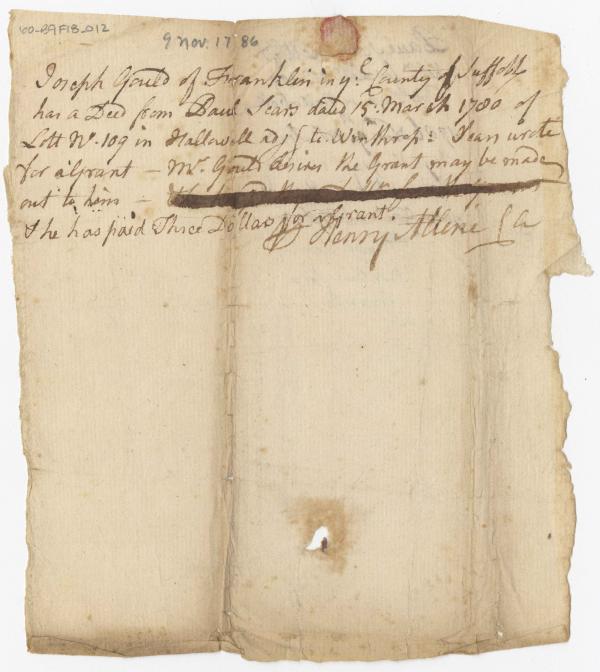 60-B9F18_012
9 Nov. 17 86
Joseph Gould of Franklin in ye: County of Suffolk
has a Deed from Paul Sears dated 15. March 1780 of
Lott No. 109 in Hallowell adj to Winthrop: Sears wrote
for a Grant — Mr. Gould desires the Grant may be made
out to him —
& he has paid Three Dollars for a Grant.
Henry Allene